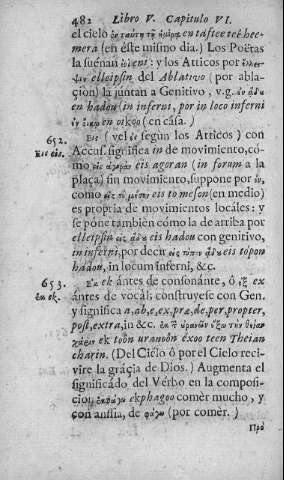 482 Libro V. Capitulo VI.
el cielo ἐν ταύτῃ τῇ ἡμέρᾳ en taftee tee hee-
mera (en éste mismo dia.) Los Poëtas
la suenan ἐνὶ eni: y los Atticos por
elleipsin del Ablativo (por abla-
cion) la júntan a Genitivo, v.g. ἐν ᾅδου
en hadou (in inferni, por in loco inferni
ἐν οἴκῳ en oikoo (en casa.)
652. Εις (vel ες según los Atticos) con
Εις eis. Accus. significa in de movimiento, có-
mo εἰς ἀγορὰν eis agoran (in forum a la
plaça) sin movimiento, suppone por ἐν,
como εἰς τὸ μέσον eis to meson (en medio)
es propria de movimientos locales: y
se póne también cómo la de arriba por
elleipsin εἰς ᾅδου eis hadou con genitivo,
in inferni, por decir εἰς τόπον ᾅδου eis topon
hadou, in locum inferni, &c.
653. Εκ ek ántes de consonánte, ó ἐξ ex
εκ ek. ántes de vocal; construyese con Gen.
y significa a, ab, e, ex, præ, de, per, propter,
post, extra, in &c. ἐκ τῶν οὐρανῶν ἔξω τὴν θείαν
χάριν ek toön uranoön exoo teen Theian
charin. (Del Cielo ó por el Cielo reci-
vire la grácia de Dios.) Augmenta el
significádo del Vérbo en la composi-
cion ἐκφάγω ekphagoo comèr mucho, y
con anssia, de φάγω (por comèr.)
Πρὸ